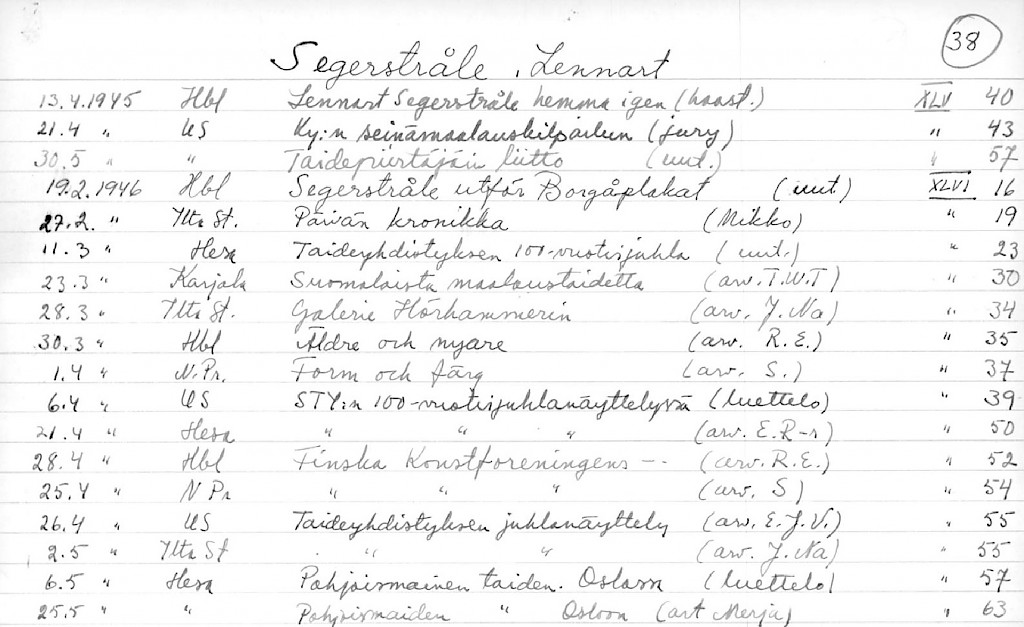 38
Segerstråle, Lennart
13.4.1945 Hbl Lennart Segerstråle hemma igen (haast.) XLV 40
21.4 " US Ky:n seinämaalauskilpailun (jury) " 43
30.5 " " Taidepiirtäjäin liitto (uut.) " 57
19.2.1946 Hbl Segerstråle utför Borgåplakat (uut) XLVI 16
27.2. " Ilta St. Päivän kronikka (Mikko) " 19
11.3 " Hesa Taideyhdistyksen 100-vuotisjuhla (uut.) " 23
23.3 " Karjala Suomalaista maalaustaidetta (arv. T.W.T) " 30
28.3 " Ilta St. Galerie Hörhammerin (arv. J. Na) " 34
30.3 " Hbl Äldre och nyare (arv. R.E.) " 35
1.4 " N.Pr. Form och färg (arv. S.) " 37
6.4 " US STY:n 100-vuotisjuhlanäyttelyssä (luettelo) " 39
21.4 " Hesa " " " (arv. E.R-r) " 50
28.4 " Hbl Finska Konstföreningens -- (arv. R.E.) " 52
25.4 " N Pr " " " (arv. S) " 54
26.4 " US Taideyhdistyksen juhlanäyttely (arv. E.J.V.) " 55
2.5 " Ilta St " " (arv. J. Na) " 55
6.5 " Hesa Pohjoismainen taiden. Oslossa (luettelo) " 57
25.5 " " Pohjoismaiden " Osloon (art Merja) " 63